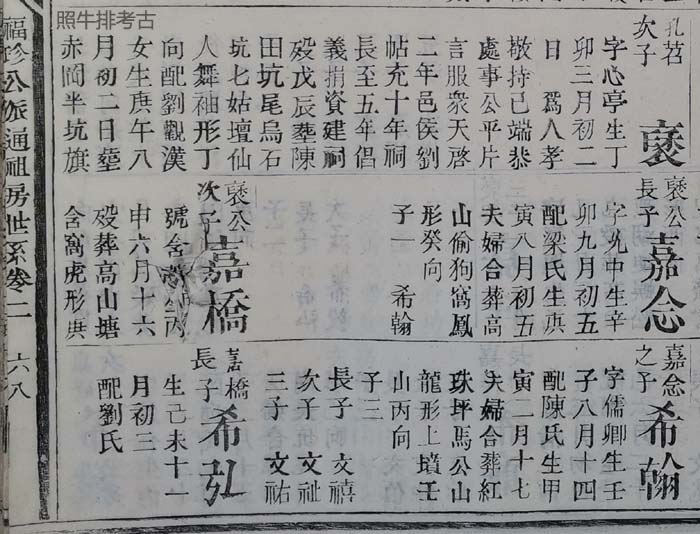 照牛排考古
孔茗
次子
褒
字心亭生丁
卯三月初二
日為人孝
敬持己端恭
處事公平片
言服衆天啓
二年邑侯劉
帖充十年祠
長至五年倡
義捐資建祠
殁戊辰塟陳
田坑尾烏石
坑七姑壇仙
人舞袖形丁
向配劉觀漢
女生庚午八
月初二日塟
赤岡半坑旗
褒公
長子
嘉念
字 中生辛
卯九月初五
配梁氏生庚
寅八月初五
夫婦合葬高
山偷狗窩鳳
形癸向
子一 希翰
褒公
次子
嘉橋
號舍 生丙
申六月十六
殁葬高山塘
含窩虎形庚
嘉念
之子
希翰
字儒卿生壬
子八月十四
配陳氏生甲
寅二月十七
夫婦合葬紅
珠坪馬公山
龍形上墳壬
山丙向
子三
長子 文禧
次子 文祉
三子 文祐
嘉橋
長子
希弘
生己未十一
月初三
配劉氏
福珍公派通祖房世系卷二 六八